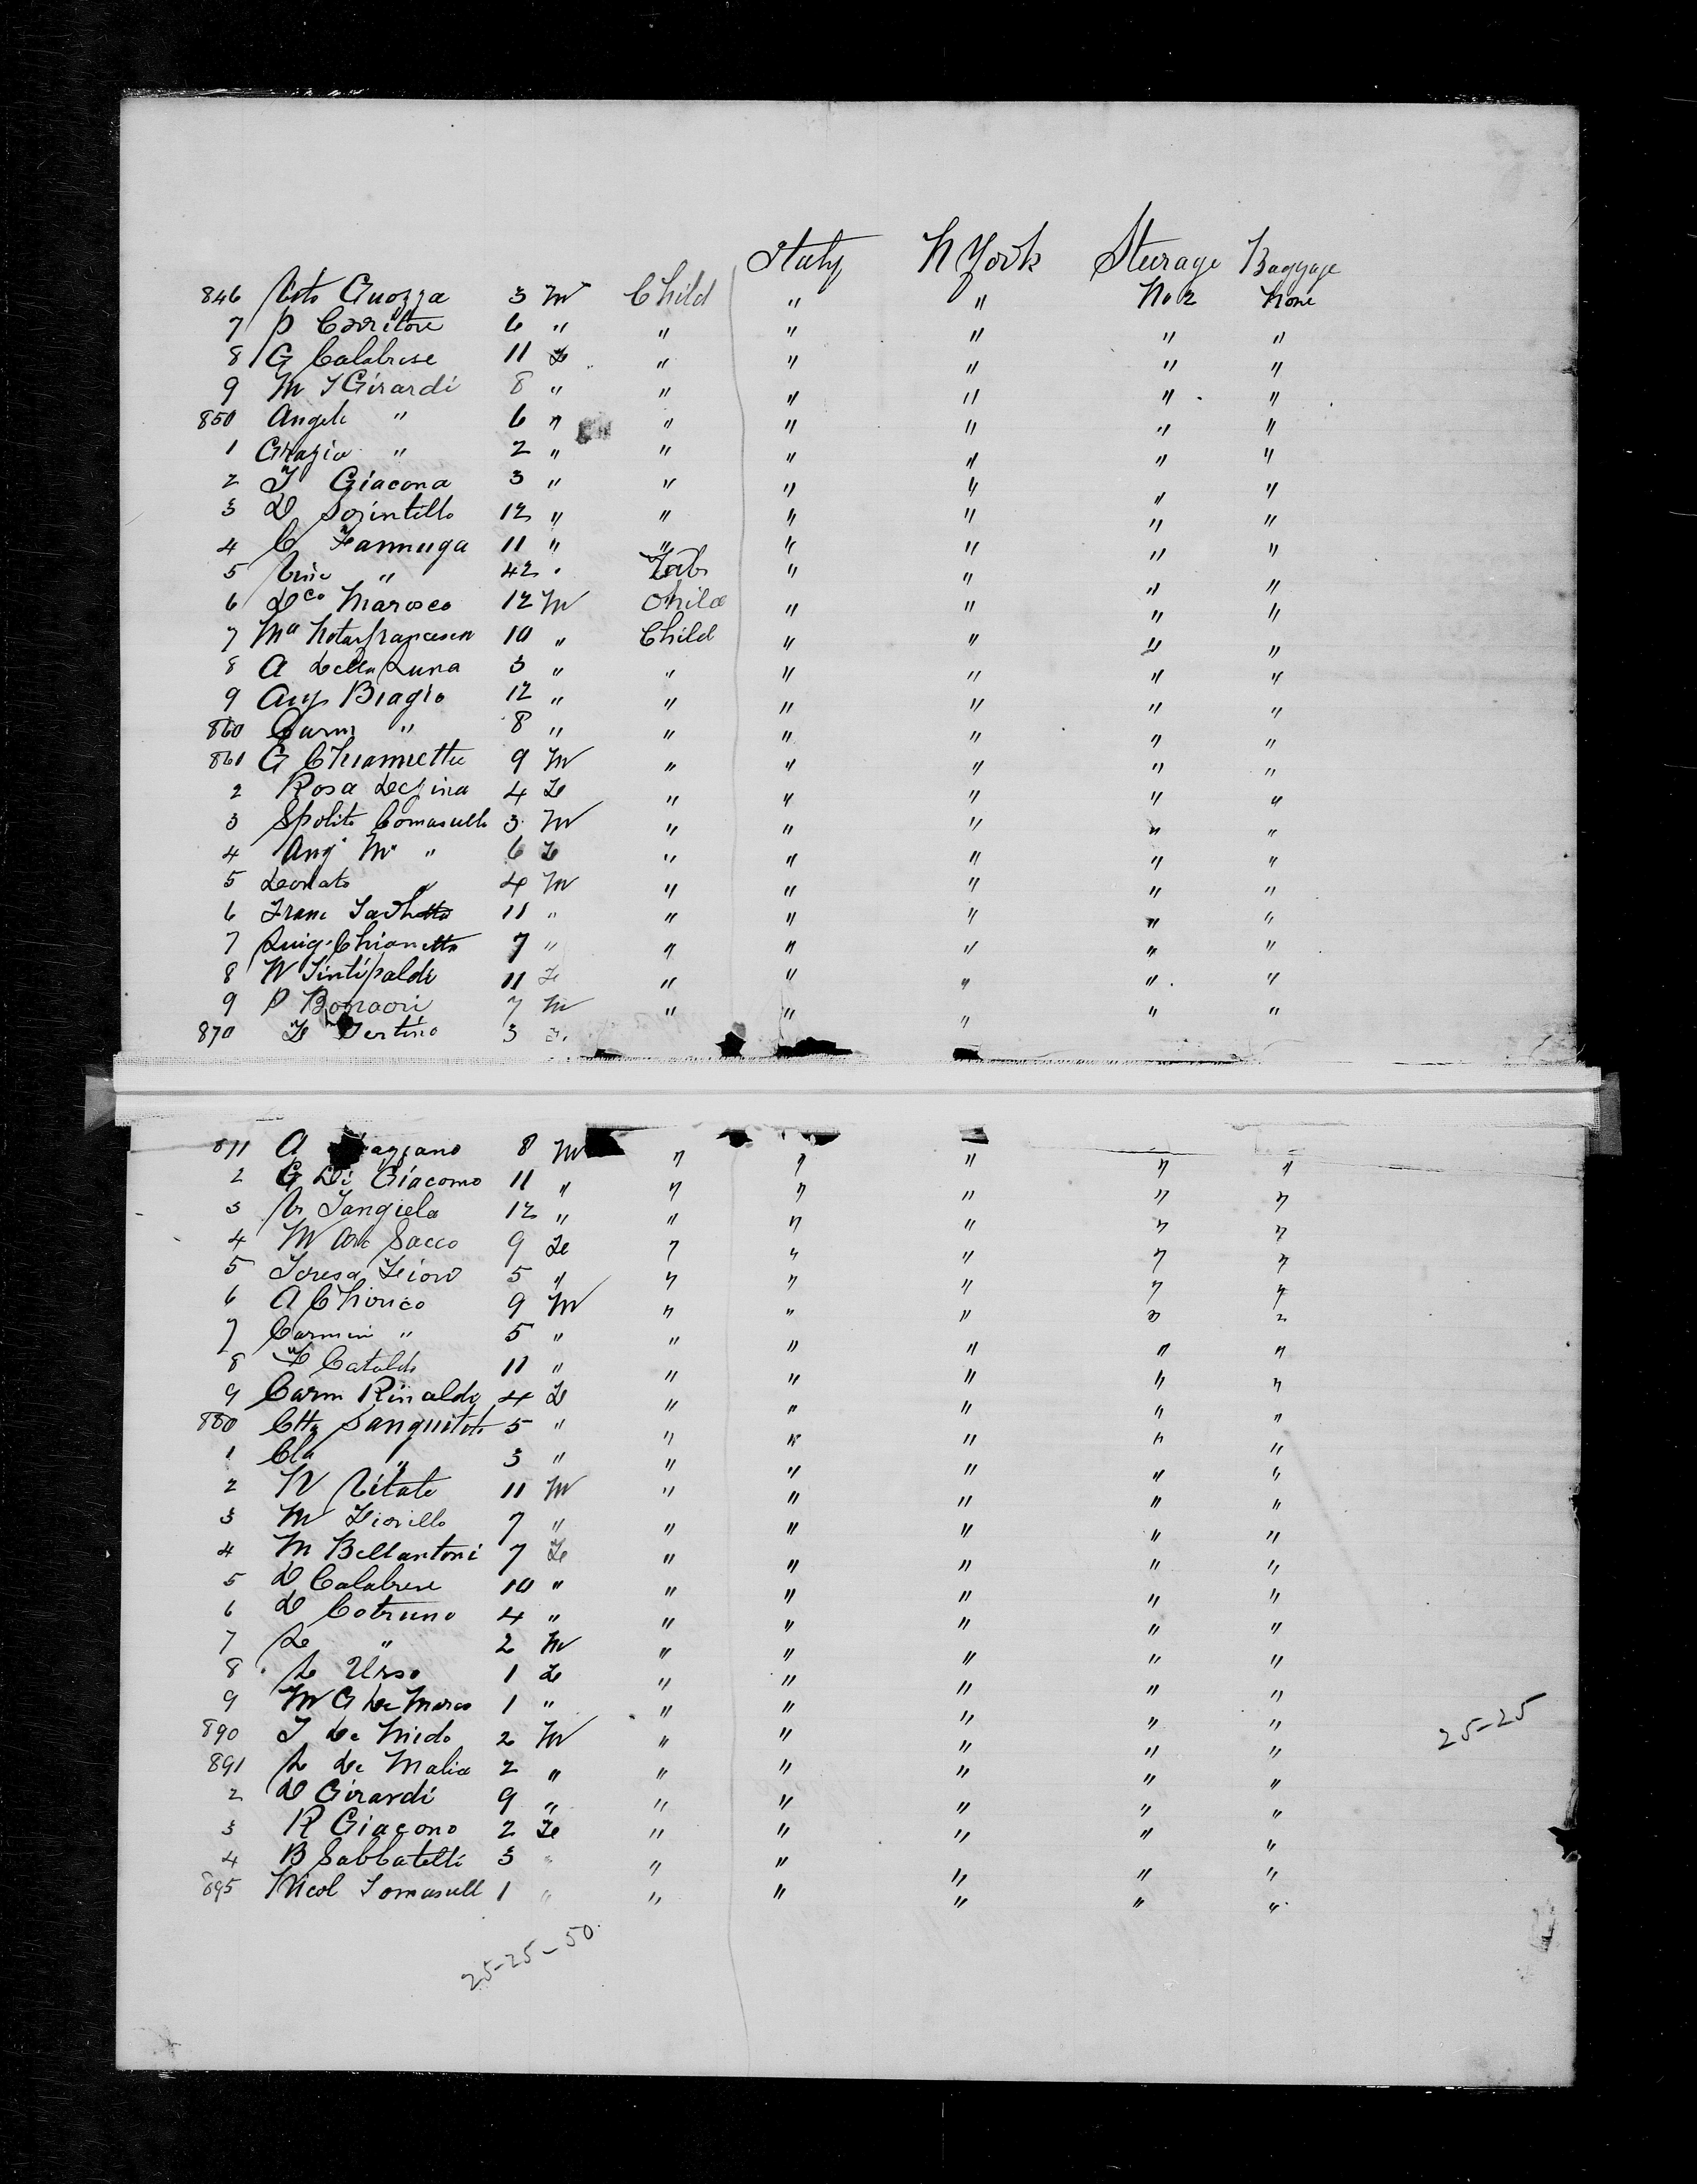 Italy N York Steerage Baggage
846 Vito Cuozza 3 M Child " " No 2 None
7 P Corritore 6 " " " " " "
8 G Calabrese 11 Fe " " " " "
9 M T Girardi 8 " " " " " "
850 Angela " 6 " " " " " "
1 Grazia " 2 " " " " " "
2 T Giacona 3 " " " " " "
3 D 12 " " " " " "
4 C Iannuga 11 " " " " " "
5 Vinc " 42 " Lab " " " "
6 Dco Marosco 12 M Child " " " "
7 Ma Notarfrancesca 10 " Child " " " "
8 A Della Luna 3 " " " " " "
9 Ang Biagio 12 " " " " " "
860 Carm " 8 " " " " " "
861 G Chiametta 9 M " " " " "
2 Rosa 4 Fe " " " " "
3 Spolito Comasullo 3 M " " " " "
4 Ang M " 6 Fe " " " " "
5 Donato " 4 M " " " " "
6 Franc 11 " " " " " "
7 Luig Chianetta 7 " " " " " "
8 N Sintipaldi 11 Fe " " " " "
9 P 7 M " " " " "
870 Fe 3 Fe "
871 A 8 M " " " " "
2 G Di Giacomo 11 " " " " " "
3 V Tangiela 12 " " " " " "
4 M Sacco 9 Fe " " " " "
5 Teresa Fiore 5 " " " " " "
6 A Chirico 9 M " " " " "
7 Carmin " 5 " " " " " "
8 F Cataldo 11 " " " " " "
9 Carm Rinaldo 4 Fe " " " " "
880 Ctta 5 " " " " " "
1 Cla " 3 " " " " " "
2 N Vitale 11 M " " " " "
3 M Fiorillo 7 " " " " " "
4 M Bellantoni 7 Fe " " " " "
5 D Calabrese 10 " " " " " "
6 D Cotruno 4 " " " " " "
7 " 2 M " " " " "
8 L Urso 1 Fe " " " " "
9 M G De Marco 1 " " " " " "
890 T De Nido 2 M " " " " "
891 L De Malia 2 " " " " " "
2 D Girardi 9 " " " " " "
3 R Giacono 2 Fe " " " " "
4 B Sabbatelli 3 " " " " " "
895 Nicol Tomasull 1 " " " " " "
25-25
25-25-50